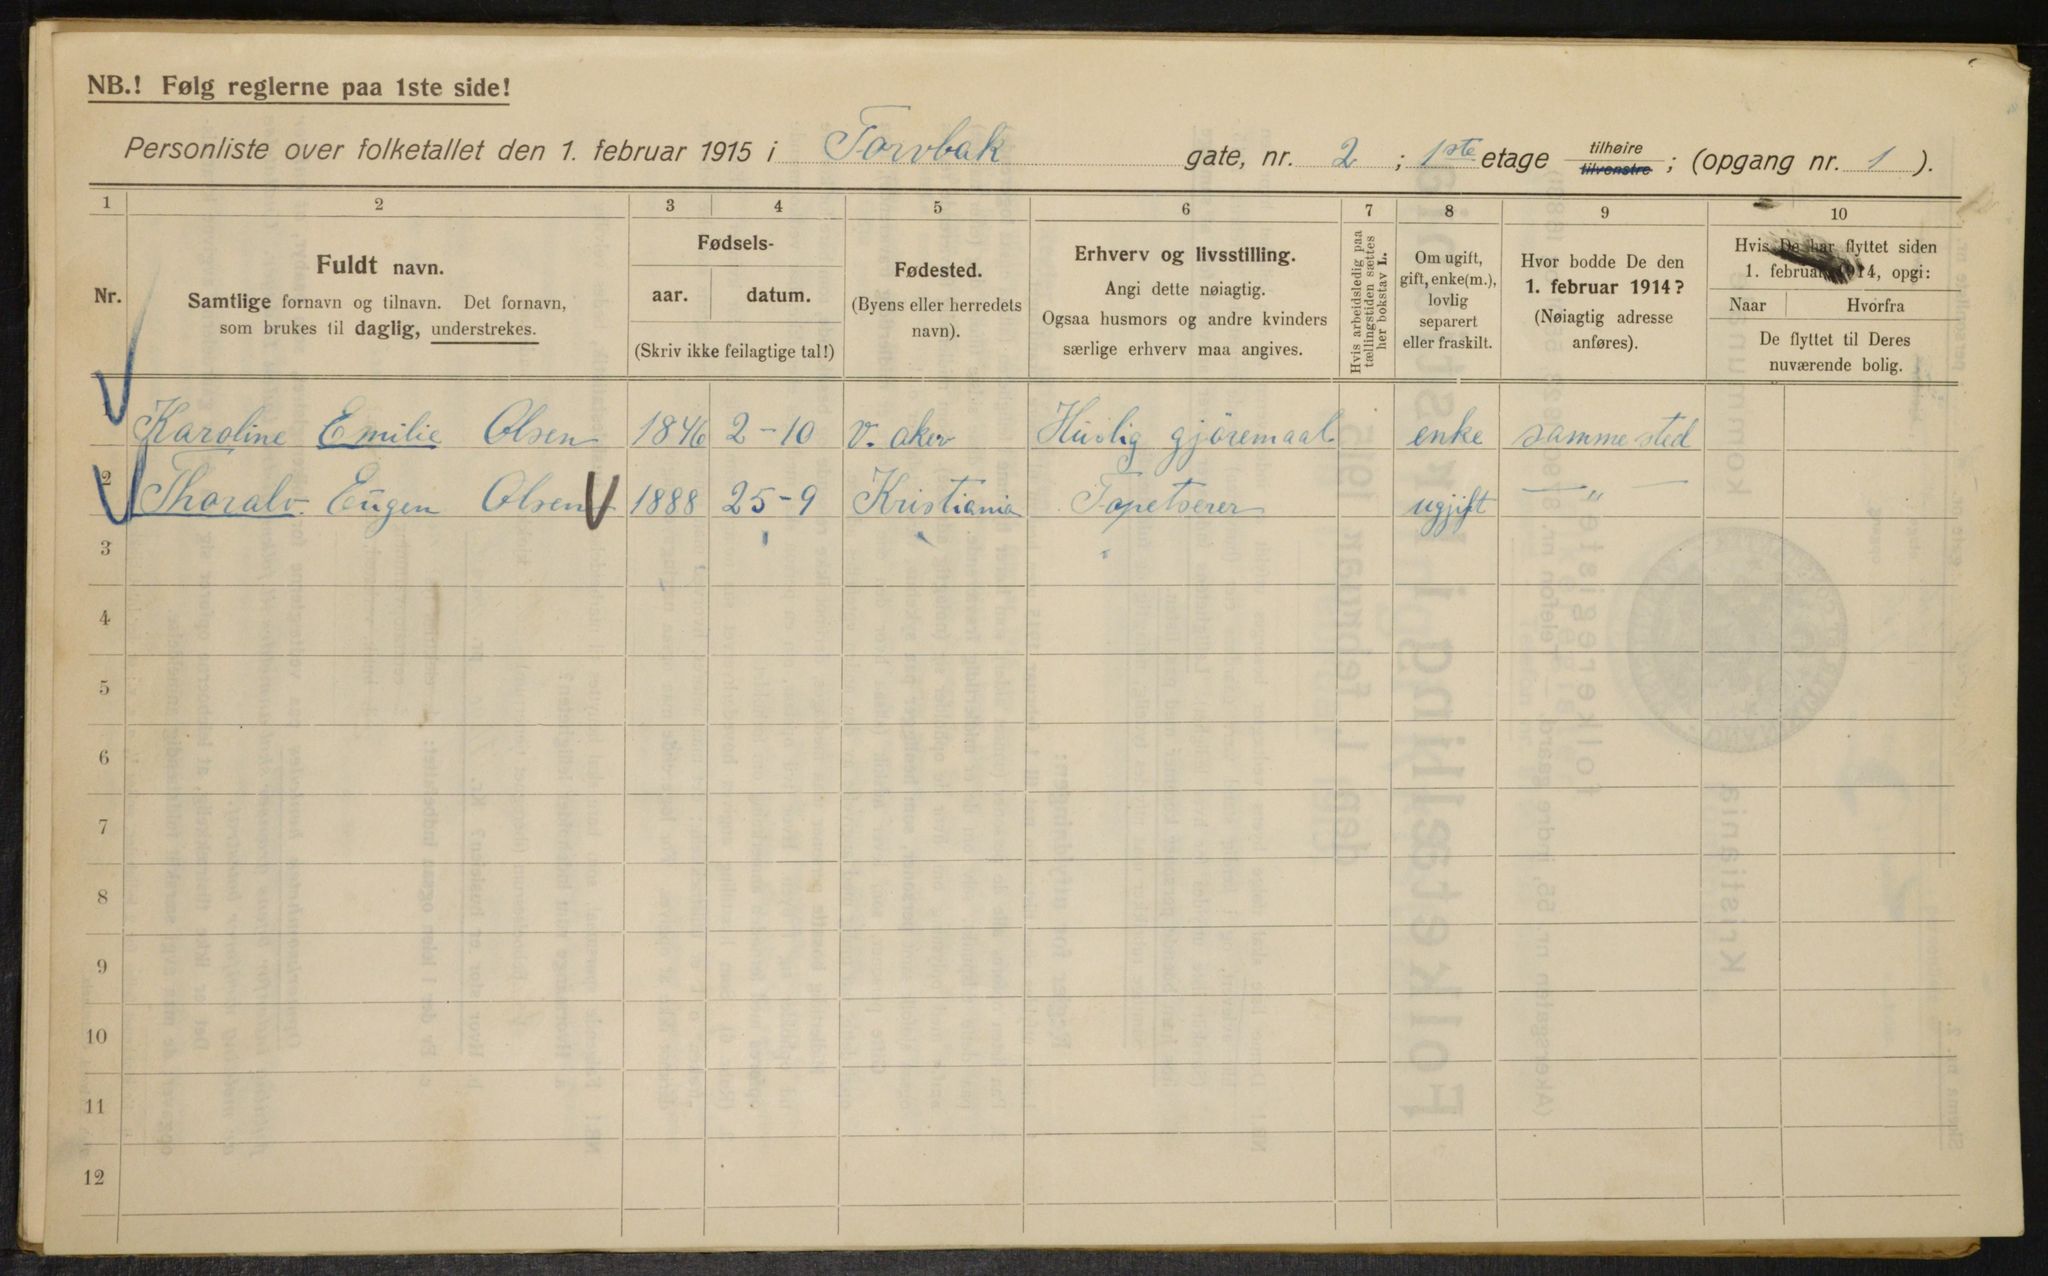 NB.! Følg reglerne paa 1ste side!
Personliste over folketallet den 1. februar 1915 i Torvbak gate, nr. 2 ; 1ste etage tilhøire tilvenstre ; (opgang nr. 1 ).
1 2 3 4 5 6 7 8 9 10
Nr.
Fuldt navn.
Samtlige fornavn og tilnavn. Det fornavn,
som brukes til daglig, understrekes.
Fødsels-
aar. datum.
(Skriv ikke feilagtige tal!)
Fødested.
(Byens eller herredets
navn).
Erhverv og livsstilling.
Angi dette nøiagtig.
Ogsaa husmors og andre kvinders
særlige erhverv maa angives.
Hvis arbeidsledig paa
tællingstiden sættes
her bokstav L.
Om ugift,
gift, enke(m.),
lovlig
separert
eller fraskilt.
Hvor bodde De den
1. februar 1914?
(Nøiagtig adresse
anføres).
Hvis De har flyttet siden
1. februar 1914, opgi:
Naar Hvorfra
De flyttet til Deres
nuværende bolig.
1 Karoline Emilie Olsen 1846 2-10 v. aker Huslig gjøremaal enke samme sted
2 Thoralv Eugen Olsen 1888 25-9 Kristiania Tapetserer ugift — " —
3
4
5
6
7
8
9
10
11
12